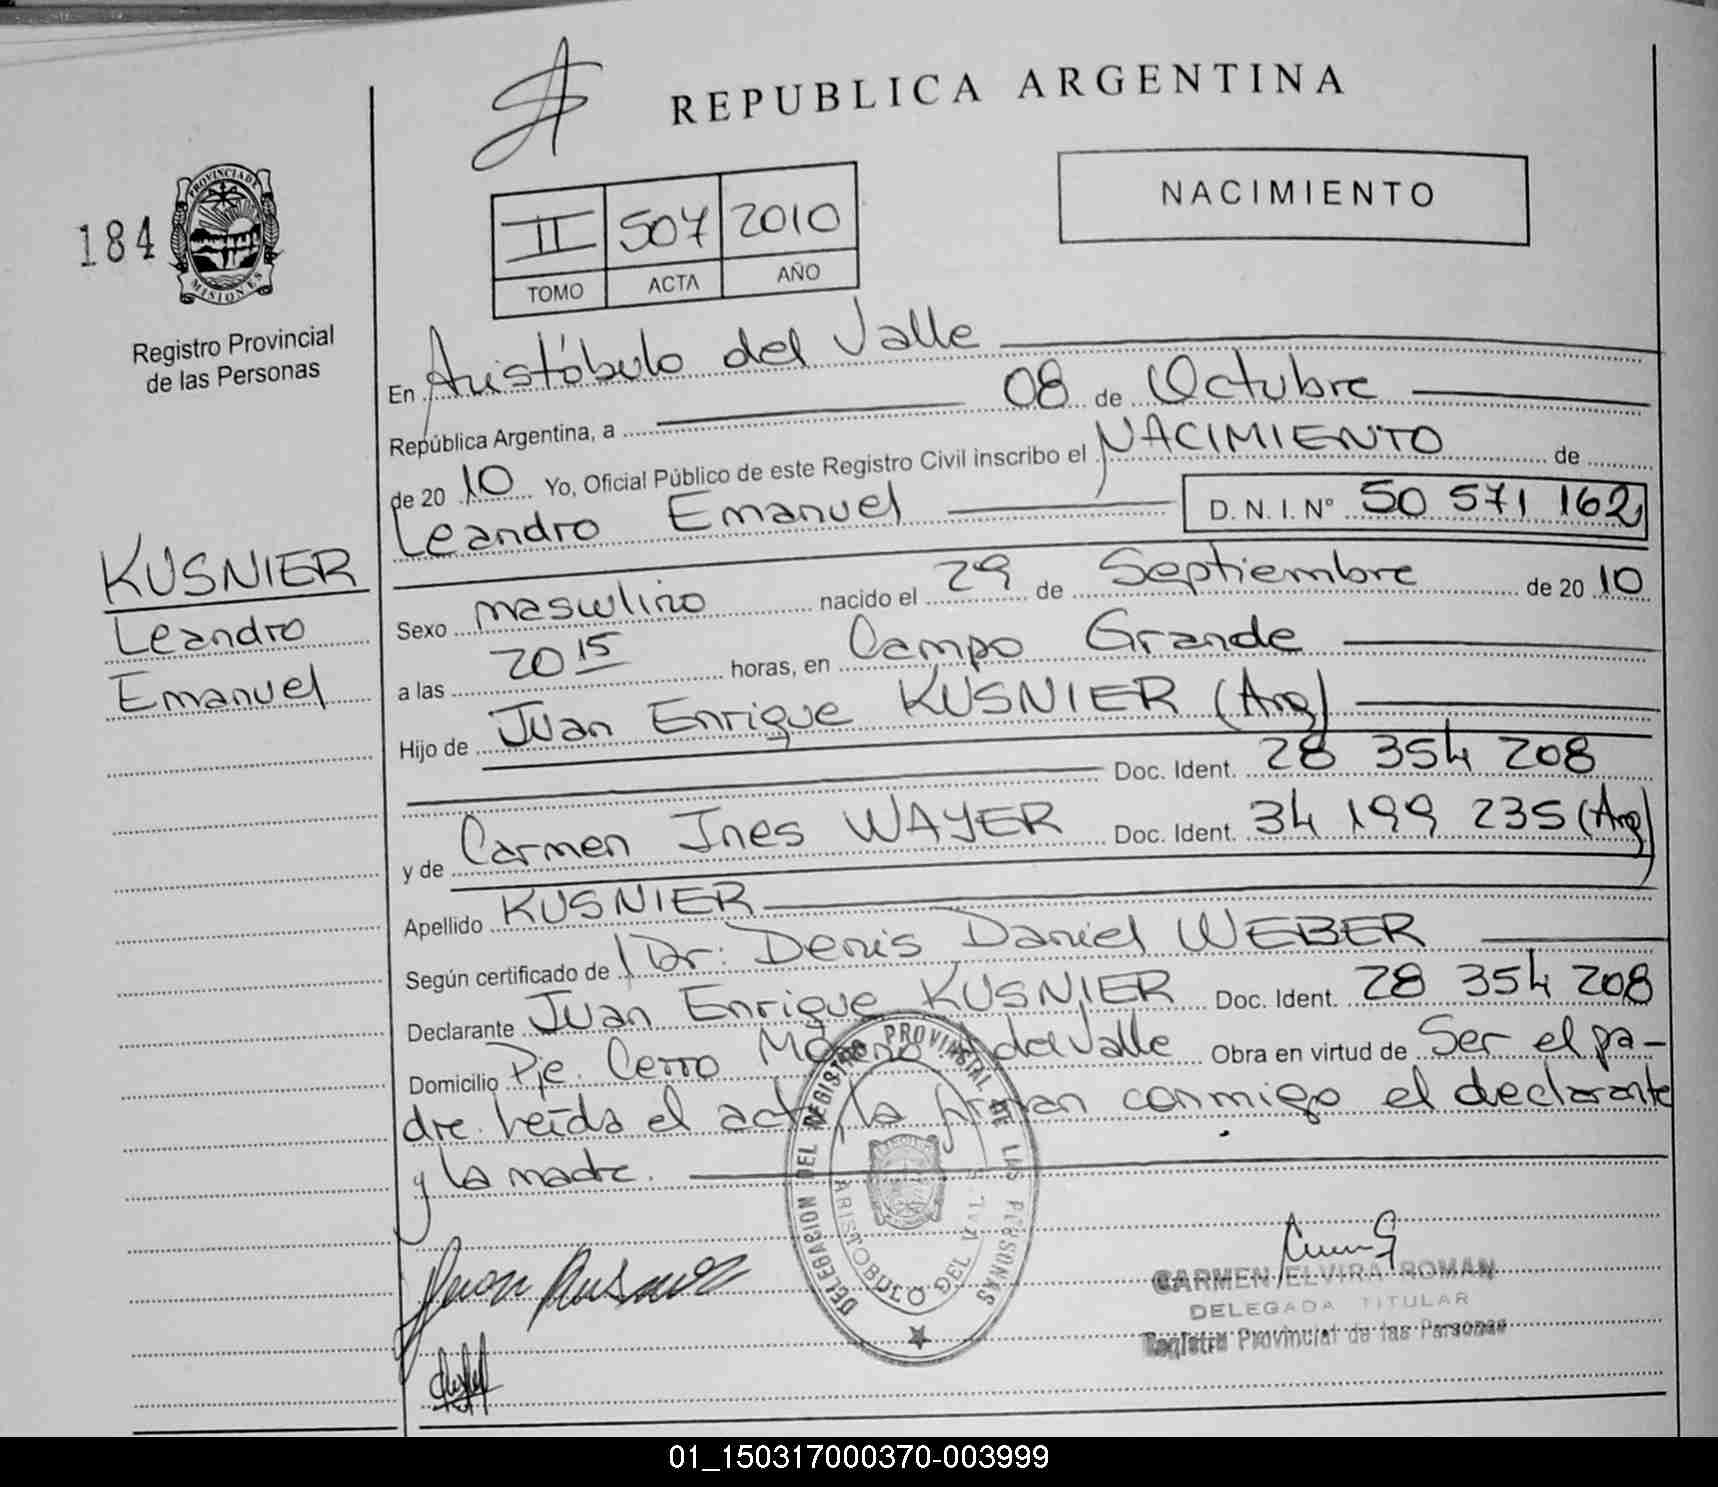 REPUBLICA ARGENTINA
NACIMIENTO
184
PROVINCIA DE
MISIONES
Registro Provincial
de las Personas
II 507 2010
TOMO ACTA AÑO
En Aristóbulo del Valle
República Argentina, a 08 de Octubre
de 20 10 Yo, Oficial Público de este Registro Civil inscribo el NACIMIENTO de
Leandro Emanuel D. N. I. Nº 50 571 162
KUSNIER
Leandro
Emanuel
Sexo masculino nacido el 29 de Septiembre de 20 10
a las 20 15 horas, en Campo Grande
Hijo de Juan Enrique KUSNIER (Arg)
Doc. Ident. 28 354 208
y de Carmen Ines WAYER Doc. Ident. 34 199 235 (Arg)
Apellido KUSNIER
Según certificado de Dr: Denis Daniel WEBER
Declarante Juan Enrique KUSNIER Doc. Ident. 28 354 208
Domicilio Pje. Cerro Moreno A del Valle Obra en virtud de Ser el pa-
dre. Leída el acta, la firman conmigo el declarante
y la madre.
DELEGACION DEL REGISTRO PROVINCIAL DE LAS PERSONAS
ARISTOBULO DEL VALLE
CARMEN ELVIRA ROMAN
DELEGADA TITULAR
Registro Provincial de las Personas
01_150317000370-003999